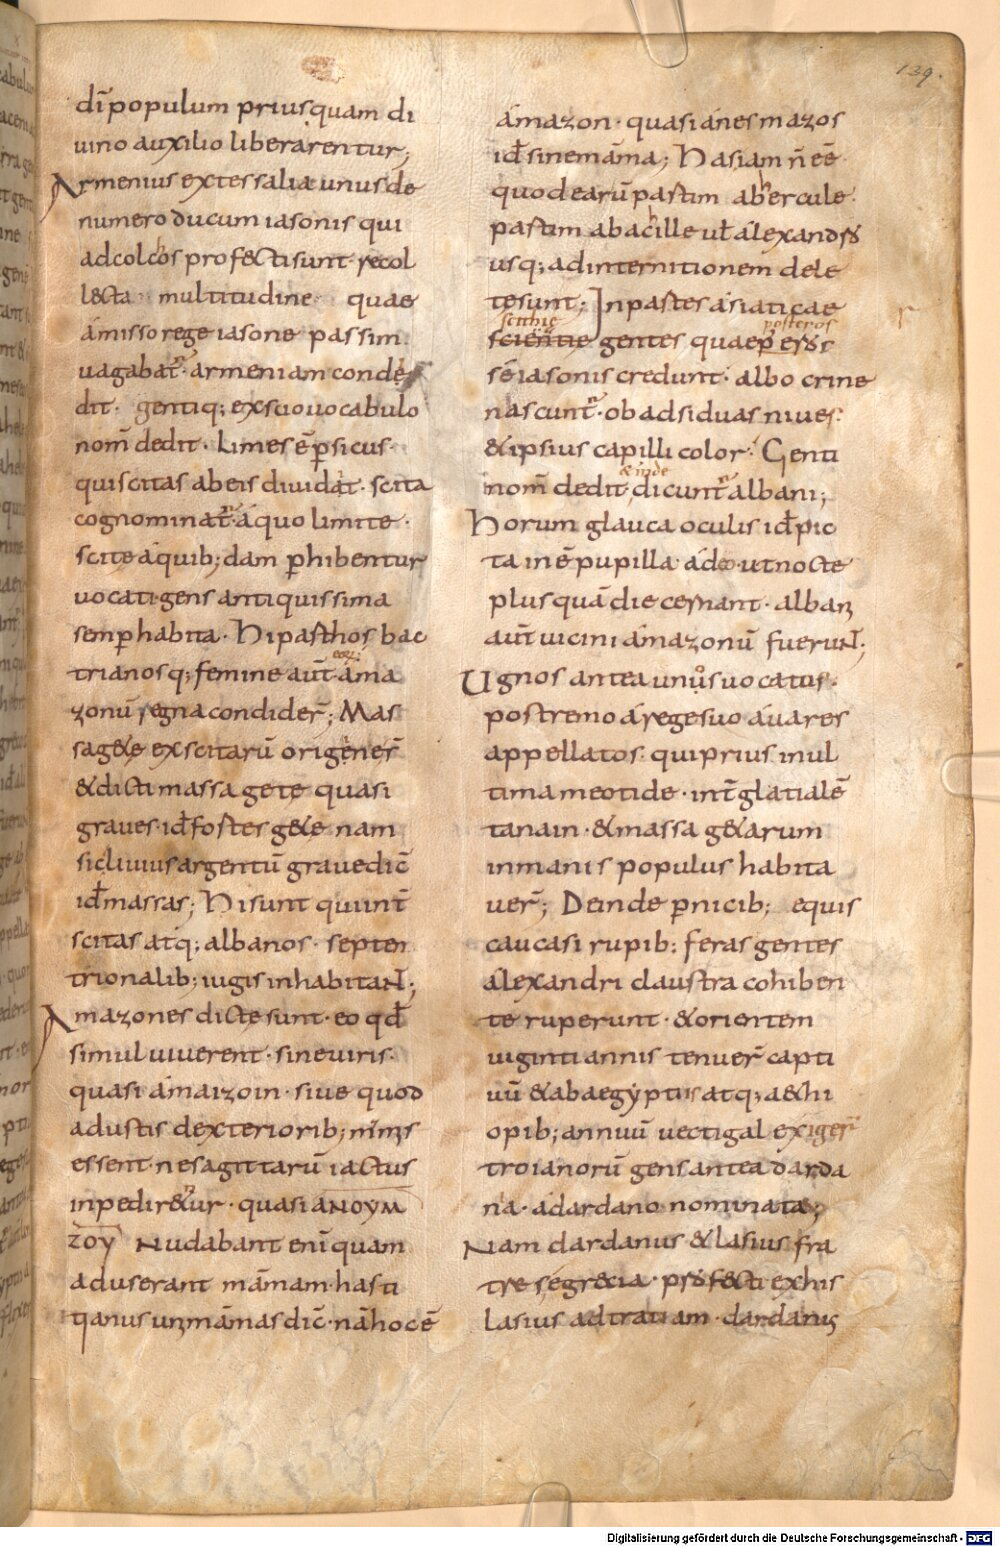 139.
dī populum priusquam di
uino auxilio liberarentur;
Armenius ex tessalia unus de
numero ducum iasonis qui
ad colchos profecti sunt recol
lecta multitudine quae
amisso rege iasone passim
uagabat̄ armeniam conde
dit. gentiq; ex suo uocabulo
nom̄ dedit. Limes ē psicus
qui scitas ab eis diuidat. scita
cognominat̄ a quo limite
scite a quib; dam phibentur
uocati gens antiquissima
semp habita. Hi pasthos bac
trianosq; femine aūt eoꝝ ama
zonū regna condider̄; Mas
sagete ex scitarū origine ner̄
& dicti massagete quasi
graues id fostes gete nam
sic liuius argentū graue dic̄
id massas; Hi sunt qui int̄
scitas atq; albanos septen
trionalib; iugis inhabitant;
Amazones dicte sunt eo qđ
simul uiuerent sine uiris
quasi amaizoin siue quod
adustis dexteriorib; mamis
essent ne sagittarū iactus
inpediretur quasi ANOYM
ZOY Nudabant enī quam
aduserant māmam hasti
tianus unimāmas dic̄ nā hoc ē
amazon quasi anes mazos
id sine māma; Has iam n̄ eē
quod earū pastim ab hercule
pastim ab achille ut alexandro
usq; ad internitionem dele
te sunt; In pastes asiaticae
scithię
scientie gentes quae posteros
sē iasonis credunt albo crine
nascunt̄ ob adsiduas niues
& ipsius capilli color Genti
nom̄ dedit & inde dicunt̄ albani;
Horum glauca oculis id pic
ta inē pupilla adeo ut nocte
plus quā die cernant albani
aūt uicini amazonū fuerunt;
Ugnos antea unnos uocatus
postremo a rege suo auares
appellatos qui prius in ul
tima meotide int̄ glatialē
tanain & massagetarum
inmanis populus habita
uer̄; Deinde pnicib; equis
caucasi rupib; feras gentes
alexandri claustra cohiben
te ruperunt & orientem
uiginti annis tenuer̄ capti
uū & ab aegyptiis atq; aethi
opib; annuū uectigal exiger̄
troianorū gens antea darda
na a dardano nominata;
Nam dardanus & lasius fra
tre se grecia profecti ex his
lasius ad tratiam dardanus
Digitalisierung gefördert durch die Deutsche Forschungsgemeinschaft - DFG